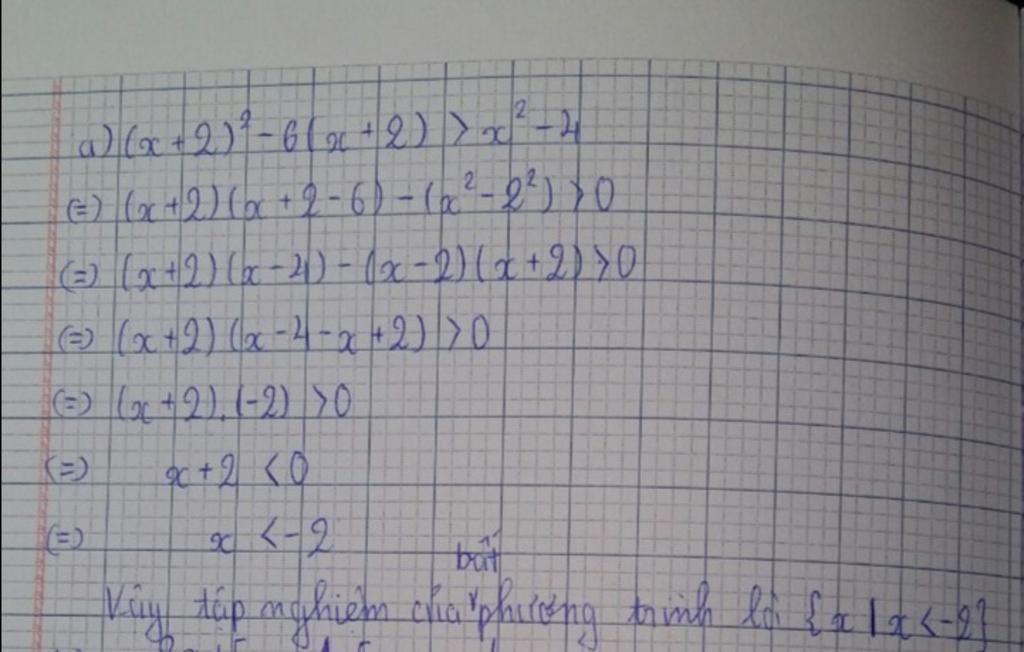 a) (x+2)² - 6(x+2) > x² - 4
(=) (x+2)(x+2-6) - (x² - 2²) > 0
(=) (x+2)(x-4) - (x-2)(x+2) > 0
(=) (x+2)(x-4-x+2) > 0
(=) (x+2).(-2) > 0
(=) x+2 < 0
(=) x < -2
Vậy tập nghiệm của bất phương trình là {x | x < -2}